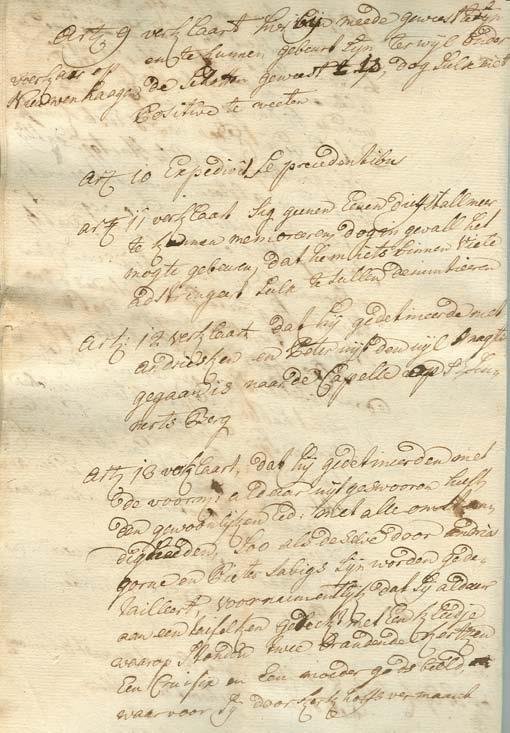 Art; 9 verklaart hier bij meede geweest te zijn
en te kunnen gebeurt zijn terwijl onder
voerhaer off
Nieuwenhaagen de Schouten geweest is, dog sulx niet
Positive te weeten
art; 10 Expedivit Se precedentibus
art; 11 verklaart Sig geenen Eenen diefstall meer
te kunnen memoreeren, dog in gevall het
mogte gebeuren, dat hem iets binnen viele
adstringeert Sulx te sullen denuntieeren
art; 12 verklaart dat hij gedetineerde met
andries en Peter uijt den wijl snagts
gegaan is naar de Capelle op St Leu-
nerts Berg
art; 13 verklaart, dat hij gedetineerden met
de voorn; aldaar uijtgeswooren heeft
den gewoonlijken Eed: met alle omstan-
digheeden, Soo als deselve door andries
gorne en Pieter Sabigs zijn worden gede-
tailleert, voornamentlijk dat Sij aldaar
aan een taifelken gedeckt met een kleedje
waarop stonden twee Brandende kertzen
Een Crusifix en Een moeder gods beeld
waarvoor Sij door kerkhoffs vermaant